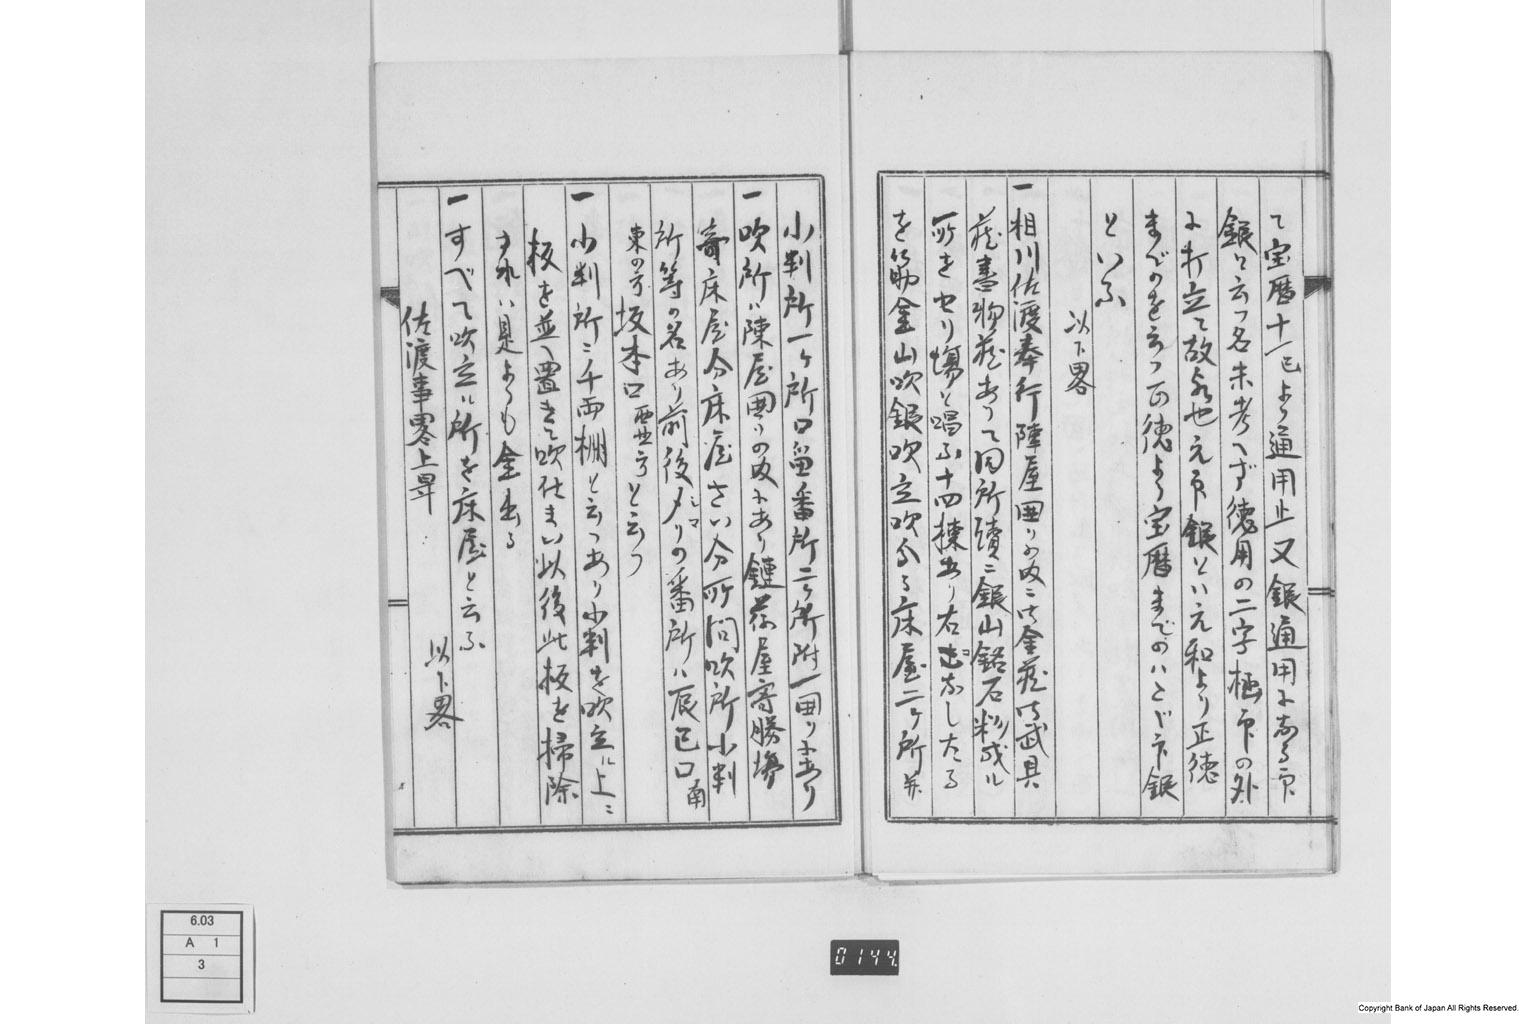 て宝暦十一巳より通用止又銀通用になる印
銀と云つ名未考へず徳用の二字極印の外
に打立て故也元印銀といい元和より正徳
までのを云つ正徳より宝暦までのハとバ下銀
といふ
以下畧
一 相川佐渡奉行陣屋囲りの内ニ御金蔵御武具
蔵書物蔵ありて同所續ニ銀山鉑石粉成ル
所をセリ場と唱ふ十四棟あり右なしたる
を筋金山吹銀吹立吹分る床屋二ヶ所并
小判所一ヶ所口留番所二ヶ所附一囲りにあり
一 吹所ハ陳屋囲りの内にあり鏈荷屋寄勝場
寄床屋分床屋さい分所問吹所小判
所等の名あり前後〆りの番所ハ辰巳口南
東の方坂本口西と云つ
一 小判所ニ千両棚と云つあり小判を吹立ル上ニ
板を並へ置きて吹仕まい以後此板を掃除
すれハ是よりも金出る
一 すべて吹立ル所を床屋と云ふ
以下畧
佐渡事畧上
6.03
A 1
3
0144
Copyright Bank of Japan All Rights Reserved.